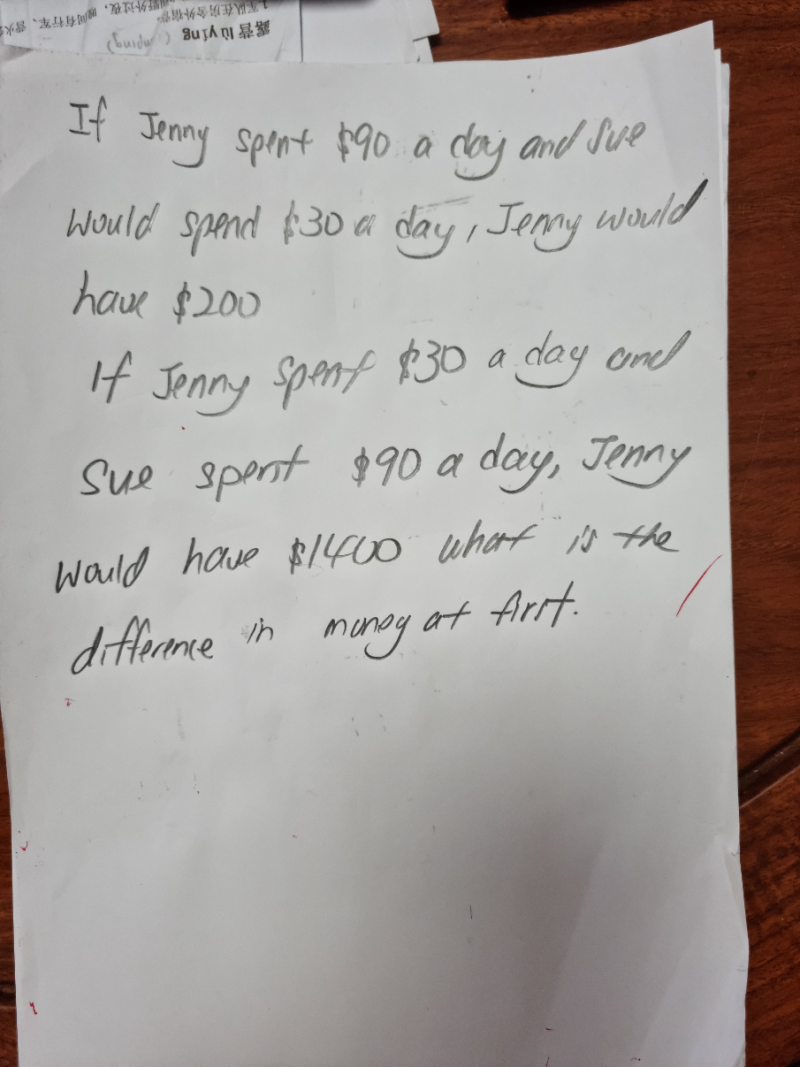 露营 lù yíng
If Jenny spent $90 a day and Sue
would spend $30 a day, Jenny would
have $200
If Jenny spent $30 a day and
Sue spent $90 a day, Jenny
would have $1400 what is the
difference in money at first.